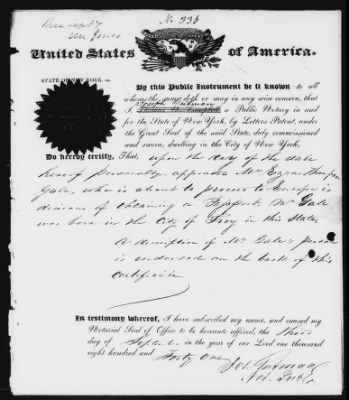 No. 336
Mr Jones
United States of America.
STATE OF NEW YORK, ss.
By this Public Instrument be it known to all
whom the same doth or may in any wise concern, that
I Joseph Putnam a Public Notary in and
for the State of New York, by Letters Patent, under
the Great Seal of the said State, duly commissioned
and sworn, dwelling in the City of New York,
Do hereby certify, That, upon the day of the date
hereof personally appeared Mr Ezra Thompson
Gale, who is about to proceed to Europe & is
desirous of obtaining a Passport. Mr Gale
was born in the City of Troy in this State,
A description of Mr Gale's person
is endorsed on the back of this
certificate
In testimony whereof, I have subscribed my name, and caused my
Notarial Seal of Office to be hereunto affixed, the third
day of September in the year of our Lord one thousand
eight hundred and Forty One
Jos. Putnam
Not. Pub.